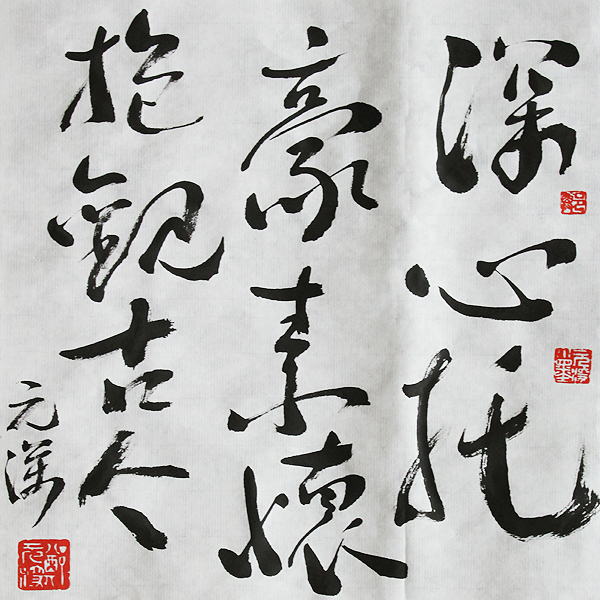 深心托
豪素懷
抱觀古今
元